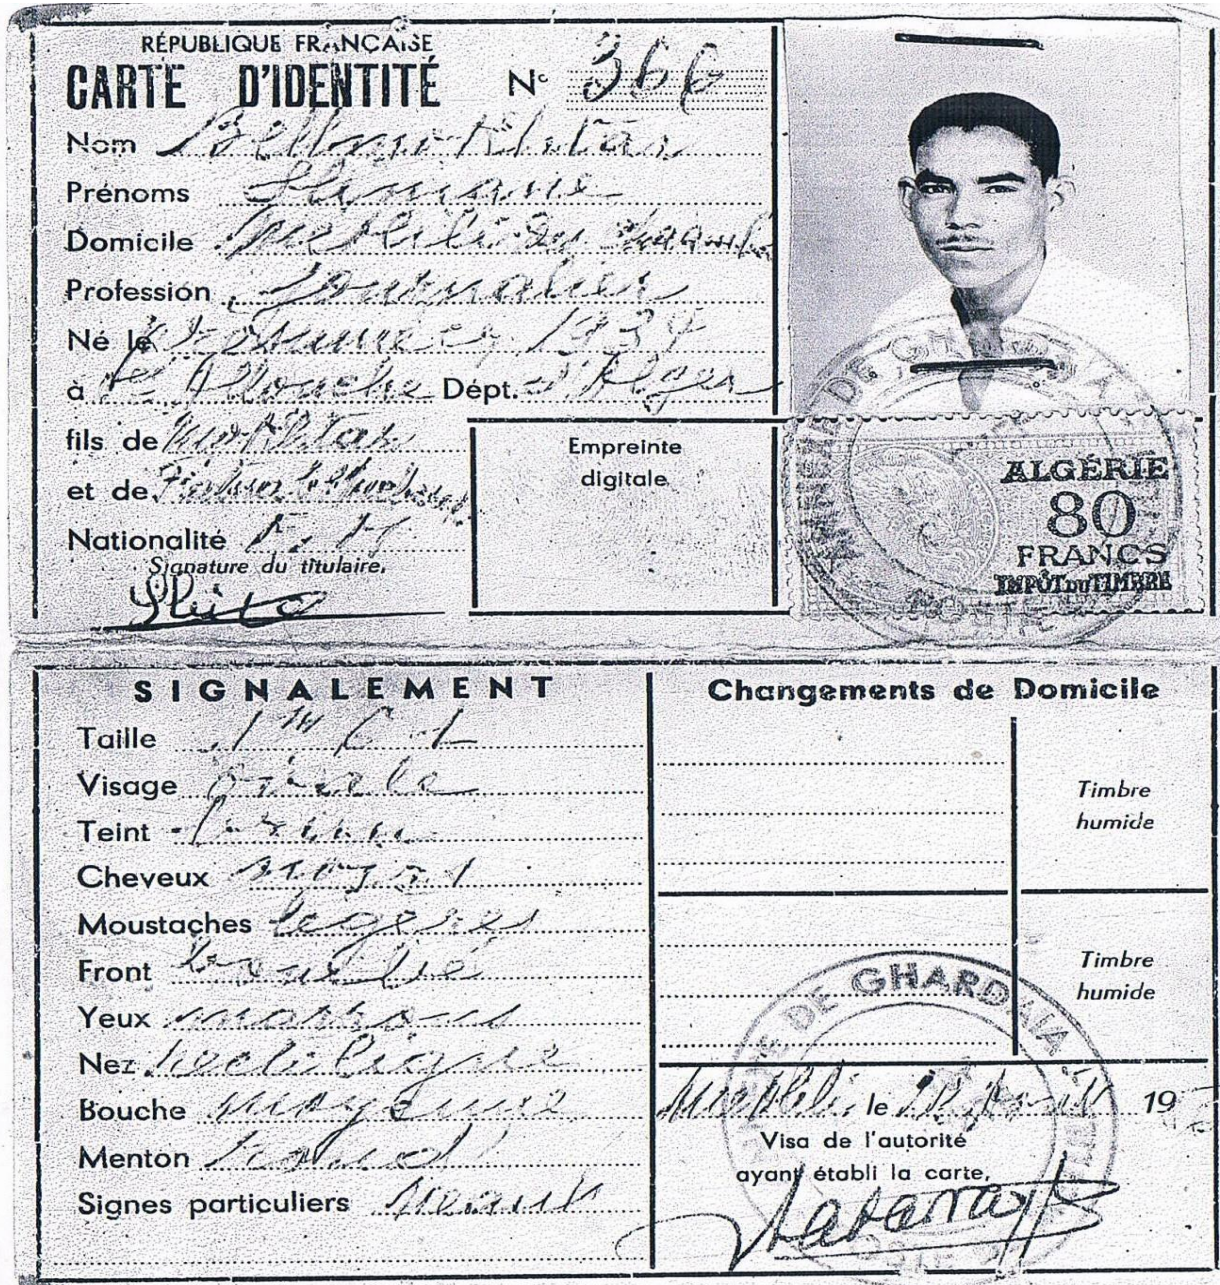 RÉPUBLIQUE FRANÇAISE
CARTE D'IDENTITÉ N° 366
Nom
Prénoms Slimane
Domicile Metlili des Chaamba
Profession Journalier
Né le Présumé en 1934
à Dépt. d'Alger
fils de Mokhtar
et de
Nationalité F. M
Signature du titulaire,
Empreinte
digitale
ALGÉRIE
80
FRANCS
IMPÔT DU TIMBRE
SIGNALEMENT
Taille 1m
Visage ovale
Teint brun
Cheveux noirs
Moustaches légères
Front bombé
Yeux marrons
Nez rectiligne
Bouche moyenne
Menton rond
Signes particuliers Néant
Changements de Domicile
Timbre
humide
Timbre
humide
DE GHARDAIA
Metlili, le Août 19
Visa de l'autorité
ayant établi la carte,